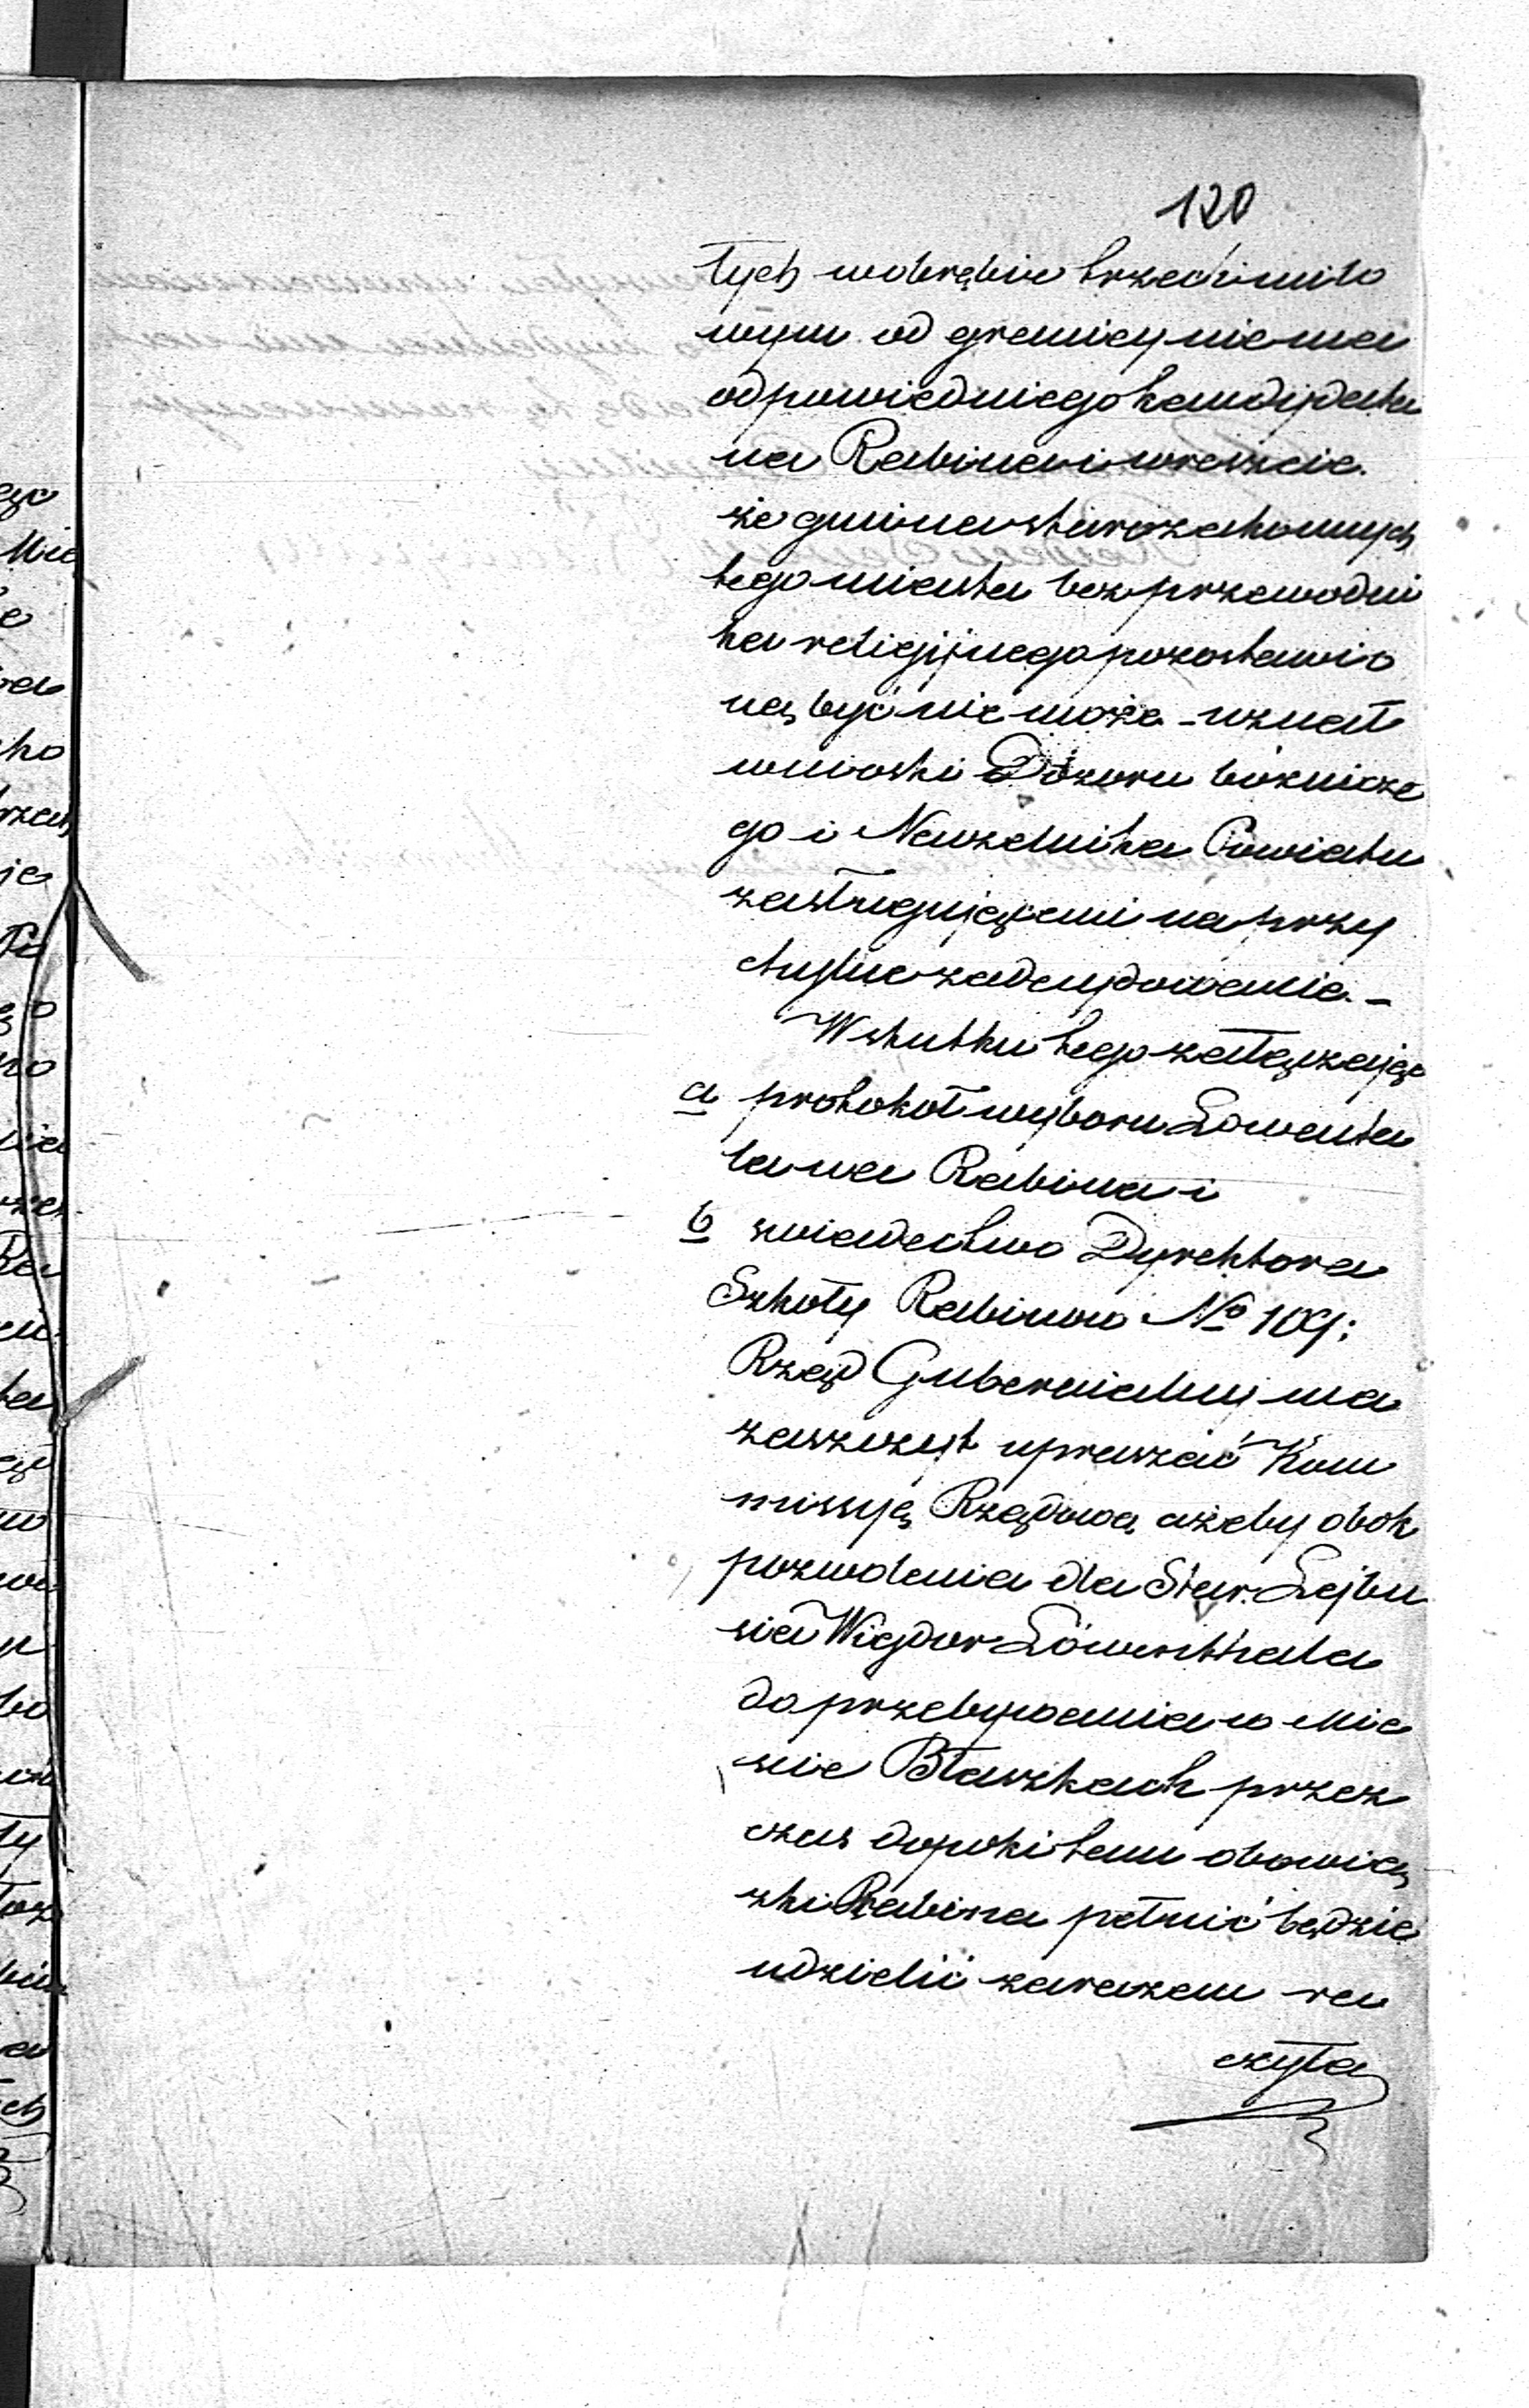 120
łych w obrębie trzechmilo
wym od granicy nie ma
odpowiedniego kandydata
na Rabina i wreszcie
że gmina starozakonnych
tego miasta bez przewodni
ka religijnego pozostawio
ną być nie może – uznał
wnioski Dozoru bóżnicze
go i Naczelnika Powiatu
zasługującemi na przy
chylne zadecydowanie. –
W skutku tego załączając
a protokół wyboru Lowenta
la na Rabina i
b swiadectwo Dyrektora
Szkoły Rabinów № 109;
Rząd Gubernialny ma
zaszczyt upraszać Kom
missyą Rządową ażeby obok
pozwolenia dla Star. Lejbu
sia Wigdor Löwenthala
do przebywania w Mie
scie Błaszkach przez
czas dopoki tam obowią
zki Rabina pełnić będzie
udzielić zarazem ra
czyła